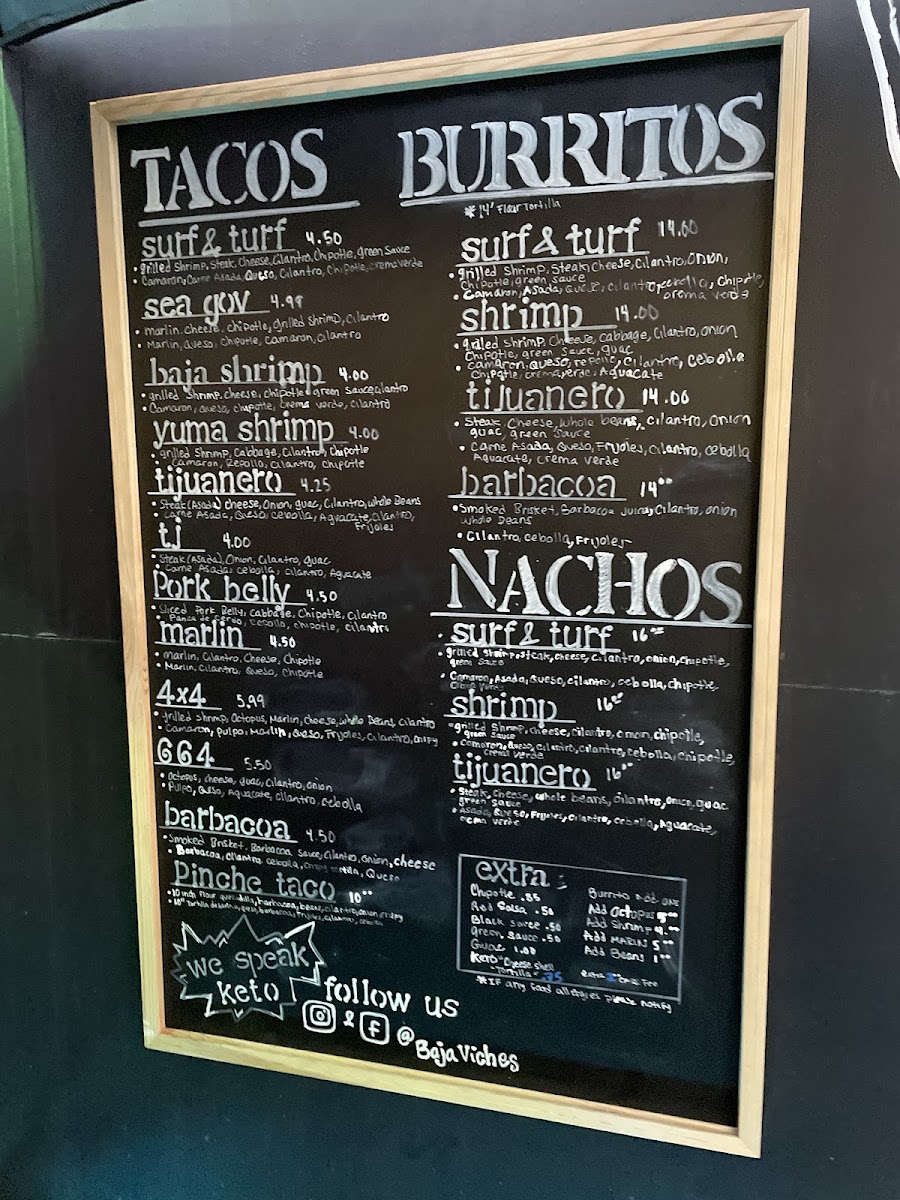 TACOS
surf & turf 4.50
• grilled Shrimp, Steak, Cheese, Cilantro, Chipotle, green Sauce
• Camaron, Carne Asada, Queso, Cilantro, Chipotle, crema verde
sea gov 4.99
• marlin, cheese, chipotle, grilled shrimp, cilantro
• Marlin, Queso, chipotle, camaron, cilantro
baja shrimp 4.00
• grilled Shrimp, cheese, chipotle, green sauce, cilantro
• Camaron, queso, chipotle, crema verde, cilantro
yuma shrimp 4.00
• grilled Shrimp, Cabbage, Cilantro, Chipotle
• Camaron, Repollo, cilantro, chipotle
tijuanero 4.25
• Steak (Asada) cheese, Onion, guac, Cilantro, whole Beans
• Carne Asada, Queso, cebolla, Aguacate, cilantro,
Frijoles
tj 4.00
• Steak (Asada), Onion, Cilantro, guac
• Carne Asada, cebolla, cilantro, Aguacate
Pork belly 4.50
• Sliced Pork Belly, Cabbage, Chipotle, Cilantro
• Panza de cerdo, cebolla, chipotle, cilantro
marlin 4.50
• marlin, Cilantro, Cheese, Chipotle
• Marlin, Cilantro, Queso, Chipotle
4x4 5.99
• grilled Shrimp, Octopus, Marlin, cheese, whole Beans, cilantro
• Camaron, pulpo, Marlin, Queso, Frijoles, cilantro, crispy
664 5.50
• Octopus, cheese, guac, cilantro, onion
• Pulpo, Queso, Aguacate, cilantro, cebolla
barbacoa 4.50
• Smoked Brisket, Barbacoa Sauce, Cilantro, onion, cheese
• Barbacoa, cilantro, cebolla, crispy tortilla, Queso
Pinche taco 10⁰⁰
• 10 inch flour quesadilla, barbacoa, beans, cilantro, onion, crispy
• 10" Tortilla de harina, queso, barbacoa, frijoles, cilantro, cebolla
we speak
keto
follow us
& @BajaViches
BURRITOS
* 14' Flour Tortilla
surf & turf 14.00
• grilled Shrimp, Steak, Cheese, Cilantro, Onion,
Chipotle, green sauce
• Camaron, Asada, Queso, cilantro, cebolla, Chipotle,
crema verde
shrimp 14.00
• grilled Shrimp, Cheese, Cabbage, Cilantro, onion
Chipotle, green sauce, guac
• camaron, Queso, repollo, cilantro, cebolla
Chipotle, crema verde, Aguacate
tijuanero 14.00
• Steak, Cheese, whole beans, cilantro, onion
guac, green sauce
• Carne Asada, Queso, Frijoles, cilantro, cebolla
Aguacate, crema verde
barbacoa 14⁰⁰
• Smoked Brisket, Barbacoa Juice, Cilantro, onion
whole Beans
• Cilantro, cebolla, Frijoles
NACHOS
surf & turf 16
• grilled Shrimp, Steak, cheese, cilantro, onion, chipotle,
green sauce
• Camaron, Asada, Queso, cilantro, cebolla, chipotle,
crema verde
shrimp 16
• grilled Shrimp, cheese, cilantro, onion, chipotle,
green sauce
• Camaron, Queso, cilantro, cilantro, cebolla, chipotle,
crema verde
tijuanero 16
• Steak, cheese, whole beans, cilantro, onion, guac
green sauce
• Asada, Queso, Frijoles, cilantro, cebolla, Aguacate,
crema verde
extra
Chipotle .85
Red Salsa .50
Black sauce .50
green Sauce .50
Guac 1.00
Keto "Cheese Shell
"Tortilla" .75
Burrito Add ONS
Add Octopus 5⁰⁰
Add Shrimp 4.⁰⁰
Add MARLIN 5⁰⁰
Add Beans 1⁰⁰
extra
* IF any food allergies please notify